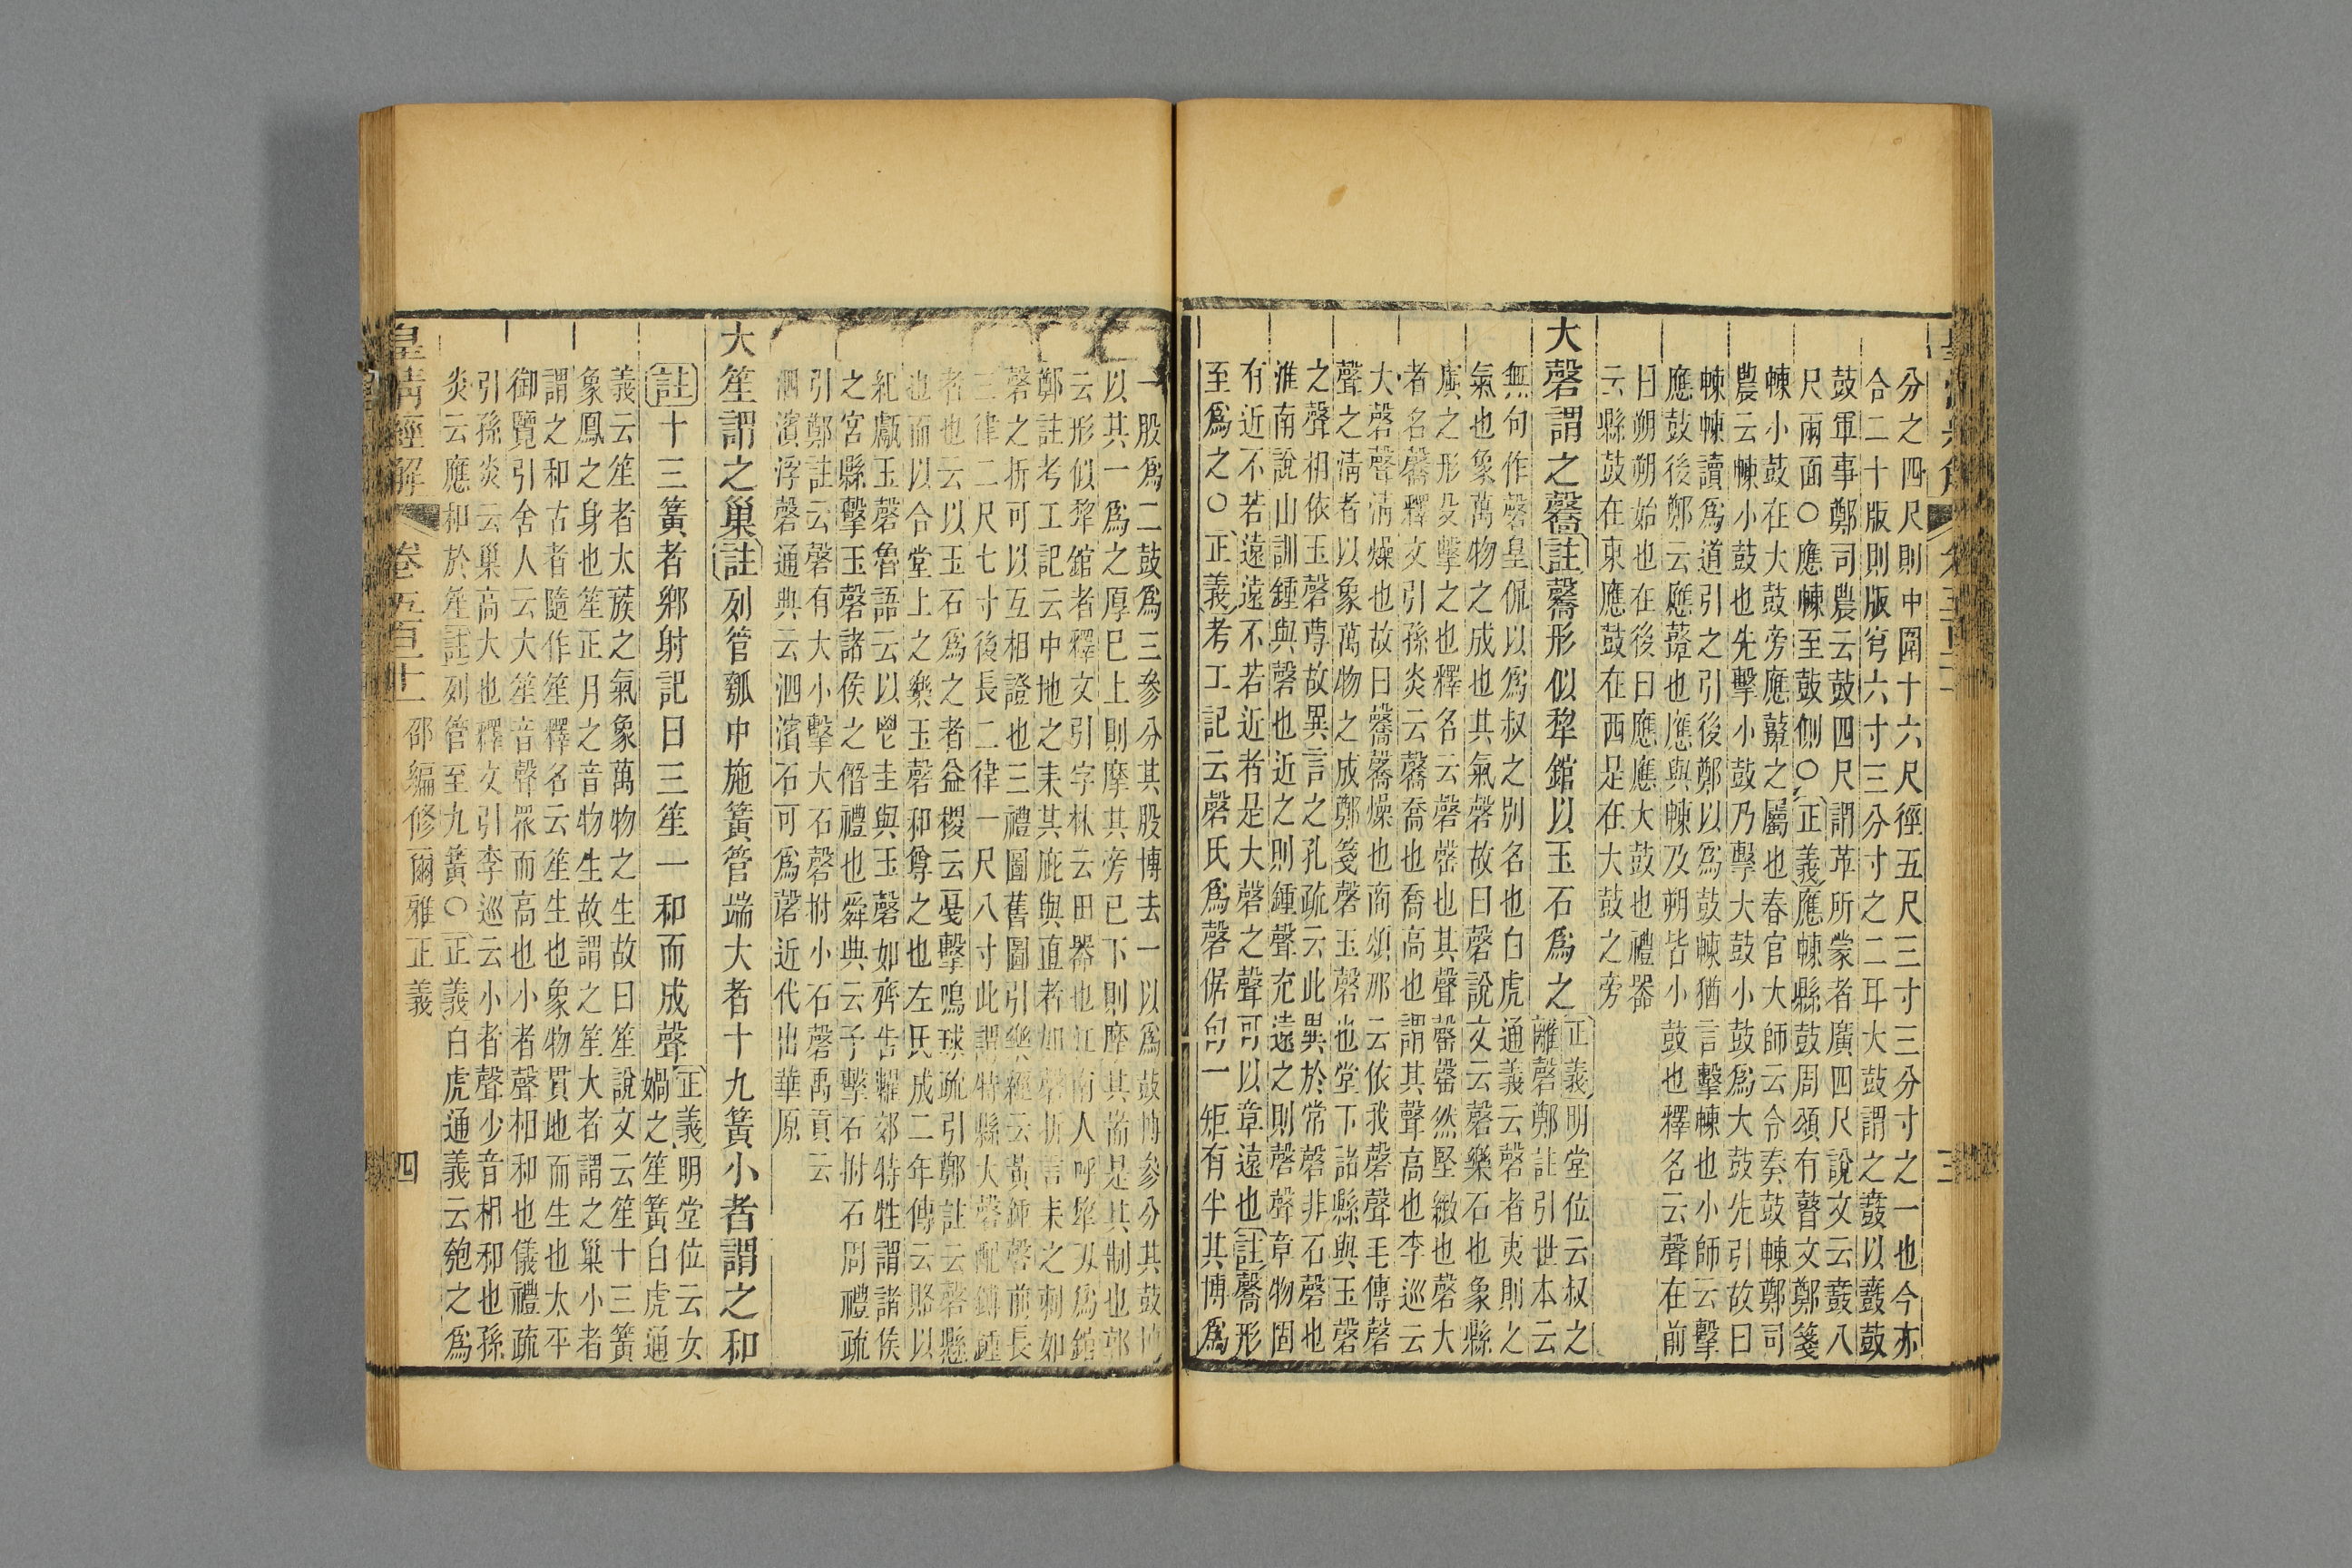 分之四尺則中圍十六尺徑五尺三寸三分寸之一也今亦
合二十版則版穹六寸三分寸之二耳大鼓謂之鼖以鼖鼓
鼓軍事鄭司農云鼓四尺謂革所蒙者廣四尺說文云鼖八
尺兩面〇應朄至鼓側〇正義應朄縣鼓周頌有瞽文鄭箋
朄小鼓在大鼓旁應鼙之屬也春官大師云令奏鼓朄鄭司
農云朄小鼓也先擊小鼓乃擊大鼓小鼓爲大鼓先引故曰
朄朄讀爲道引之引後鄭以爲鼓朄猶言擊朄也小師云擊
應鼓後鄭云應鼙也應與朄及朔皆小鼓也釋名云聲在前
曰朔朔始也在後曰應應大鼓也禮器
云縣鼓在東應鼓在西是在大鼓之旁
大磬謂之毊註毊形似犂錧以玉石爲之
正義明堂位云叔之
離磬鄭註引世本云
無句作磬皇侃以爲叔之別名也白虎通義云磬者夷則之
氣也象萬物之成也其氣磬故曰磬說文云磬樂石也象縣
虡之形殳擊之也釋名云磬罄也其聲罄罄然堅緻也磬大
者名毊釋文引孫炎云毊喬也喬高也謂其聲高也李巡云
大磬聲淸燥也故曰毊毊燥也商頌那云依我磬聲毛傳磬
聲之淸者以象萬物之成鄭箋磬玉磬也堂下諸縣與玉磬
之聲相依玉磬尊故異言之孔疏云此異於常磬非石磬也
淮南說山訓鍾與磬也近之則鍾聲充遠之則磬聲章物固
有近不若遠遠不若近者是大磬之聲可以章遠也註毊形
至爲之〇正義考工記云磬氏爲磬倨句一矩有半其博爲
一股爲二鼓爲三參分其股博去一以爲鼓博參分其鼓博
以其一爲之厚已上則摩其旁已下則摩其耑是其制也郭
云形似犂錧者釋文引字林云田器也江南人呼犂刃爲錧
鄭註考工記云中地之耒其庇與直者如磬折言耒之刺如
磬之折可以互相證也三禮圖舊圖引樂經云黃鍾磬前長
三律二尺七寸後長二律一尺八寸此謂特縣大磬配鎛鍾
者也云以玉石爲之者益稷云戞擊鳴球疏引鄭註云磬懸
也而以合堂上之樂玉磬和尊之也左氏成二年傳云賂以
紀甗玉磬魯語云以鬯圭與玉磬如齊告糴郊特牲謂諸侯
之宮縣擊玉磬諸侯之僭禮也舜典云予擊石拊石周禮疏
引鄭註云磬有大小擊大石磬拊小石磬禹貢云
泗濱浮磬通典云泗濱石可爲磬近代出華原
大笙謂之巢註列管瓠中施簧管端大者十九簧小者謂之和
註十三簧者鄕射記曰三笙一和而成聲
正義明堂位云女
媧之笙簧白虎通
義云笙者太蔟之氣象萬物之生故曰笙說文云笙十三簧
象鳳之身也笙正月之音物生故謂之笙大者謂之巢小者
謂之和古者隨作笙釋名云笙生也象物貫地而生也太平
御覽引舍人云大笙音聲衆而高也小者聲相和也儀禮疏
引孫炎云巢高大也釋文引李巡云小者聲少音相和也孫
炎云應和於笙註列管至九簧〇正義白虎通義云匏之爲
皇淸經解 卷五百十一 邵編修爾雅正義 四